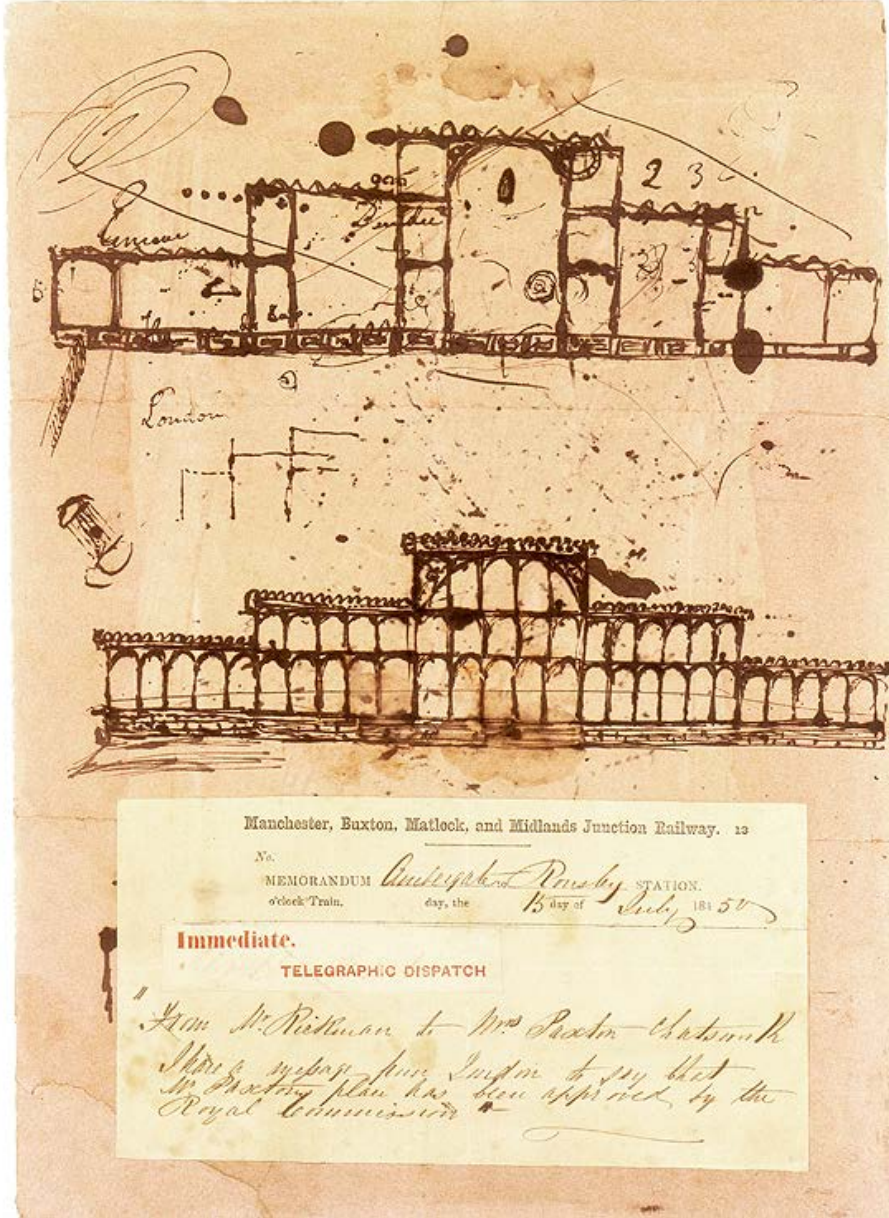 2 3
London
Manchester, Buxton, Matlock, and Midlands Junction Railway. 13
No.
MEMORANDUM Ambergate & Rowsley STATION.
o'clock Train, day, the 15 day of July 1850
Immediate.
TELEGRAPHIC DISPATCH
"From Mr Rickman to Mrs Paxton Chatsworth
I have a message from London to say that
Mr Paxtons plan has been approved by the
Royal Commission"